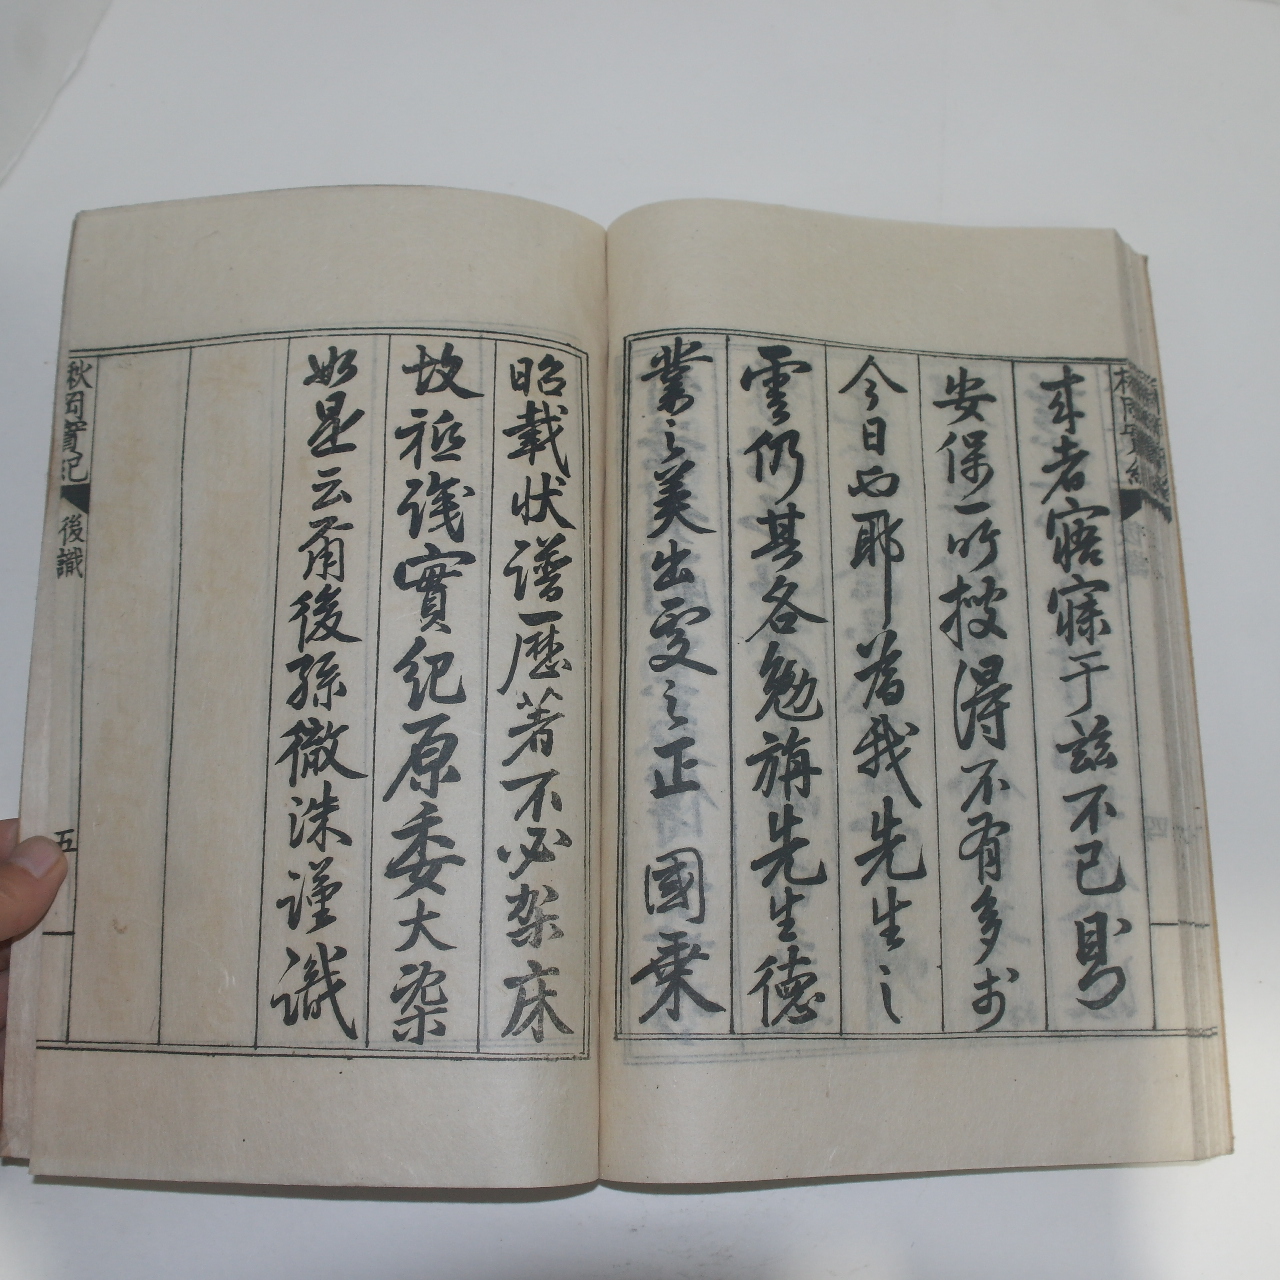 來者寤寐于玆不已則
安保一所搜得不有多於
今日也耶若我先生之
雲仍其各勉旃先生德
業之美出處之正 國乘
昭載狀譜一歷著不必架床
故祗識實紀原委大槩
如是云爾後孫徹洙謹識
秋岡實紀
後識
五